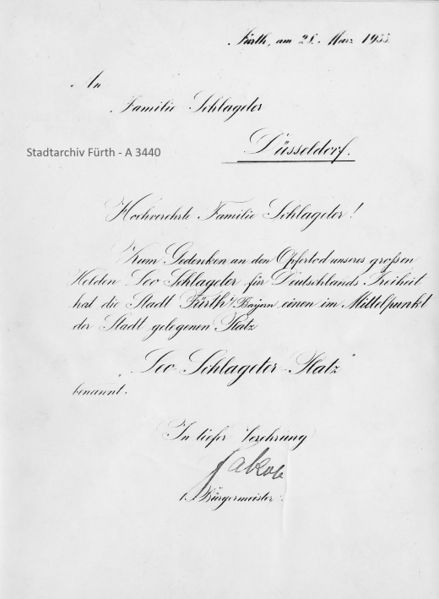 Fürth, am 28. März 1933
An
Familie Schlageter
Stadtarchiv Fürth - A 3440
Düsseldorf.
Hochverehrte Familie Schlageter!
Zum Gedenken an den Opfertod unseres großen
Helden Leo Schlageter für Deutschlands Freiheit
hat die Stadt Fürth i/Bayern einen im Mittelpunkt
der Stadt gelegenen Platz
"Leo Schlageter-Platz"
benannt.
In tiefer Verehrung
Jakob
1. Bürgermeister.